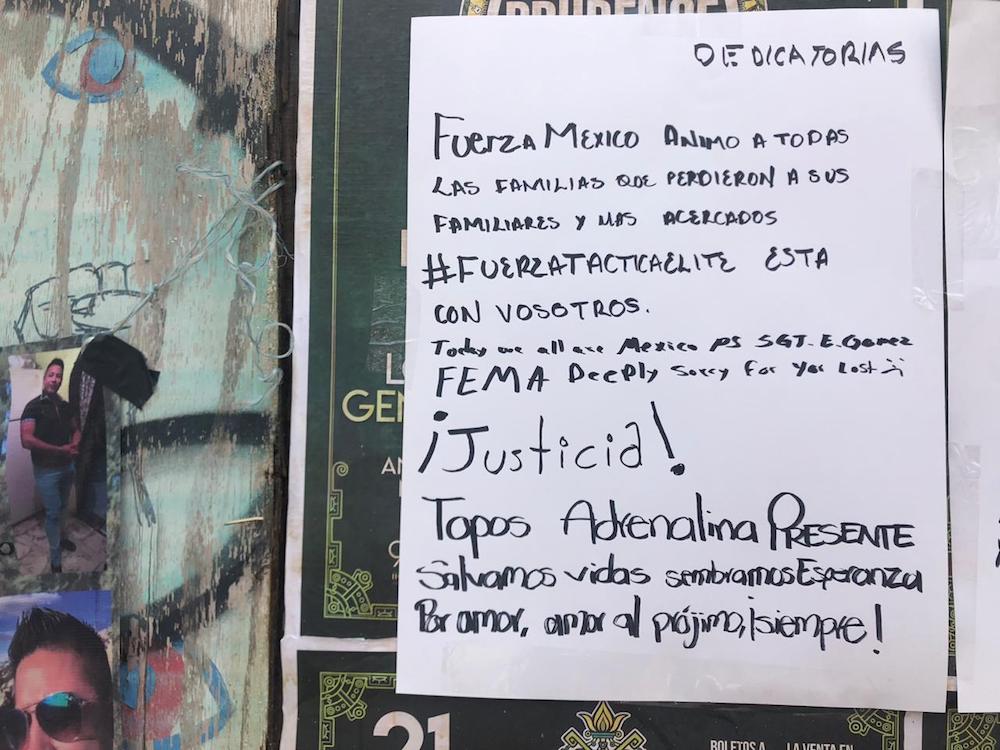 PRUDENCE
DEDICATORIAS
FUERZA MEXICO ANIMO A TODAS
LAS FAMILIAS QUE PERDIERON A SUS
FAMILIARES Y MAS ACERCADOS
#FUERZATACTICAELITE ESTA
CON VOSOTROS.
Today we all are Mexico PS SGT. E. Gomez
FEMA DeePly Sorry For You Lost
¡Justicia!
Topos Adrenalina PRESENTE
Salvamos vidas sembramos Esperanza
Por amor, amor al prójimo, ¡siempre!
GEN
AN
21
BOLETOS A
LA VENTA EN